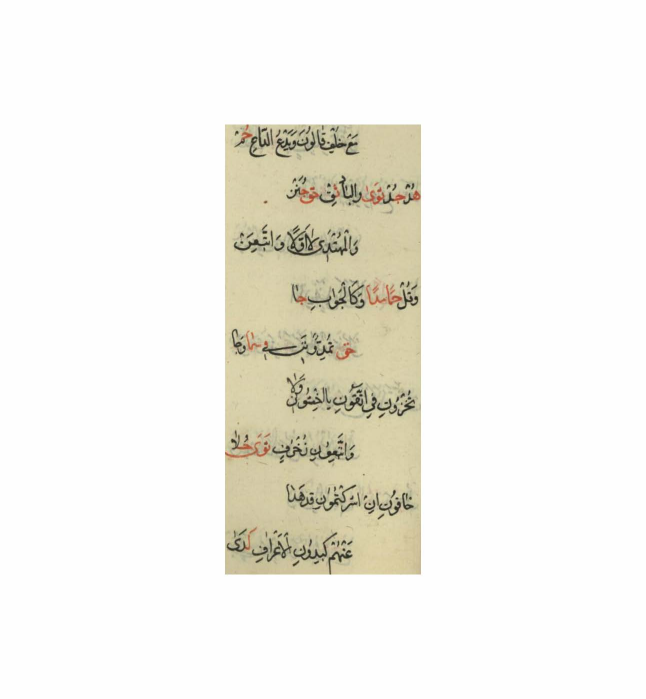 مَعْ خُلْفِ قَالُونَ وَيَدْعُ الدَّاعِ حُمْ
هُدْ جُدْ ثَوَى وَالْبَادِ ثِقْ حَقٌّ جُنَنْ
وَالْمُهْتَدِى لَا أَوَّلًا وَاتَّبَعَنْ
وَقُلْ حِمًا مَدًا وَكَالْجَوَابِ جَا
حَقٌّ تُمِدُّونَنِ فِي سَمَا وَجَا
تُخْزُونِ فِي اتَّقُونِ يَا اخْشَوْنِ وَلَا
وَاتَّبِعُونِ زُخْرُفٍ ثَوَى حُلَا
خَافُونِ اِنْ اَشْرَكْتُمُونِ قَدْ هَدَا
عَنْهُمْ كِيدُونِ الْاَعْرَافِ